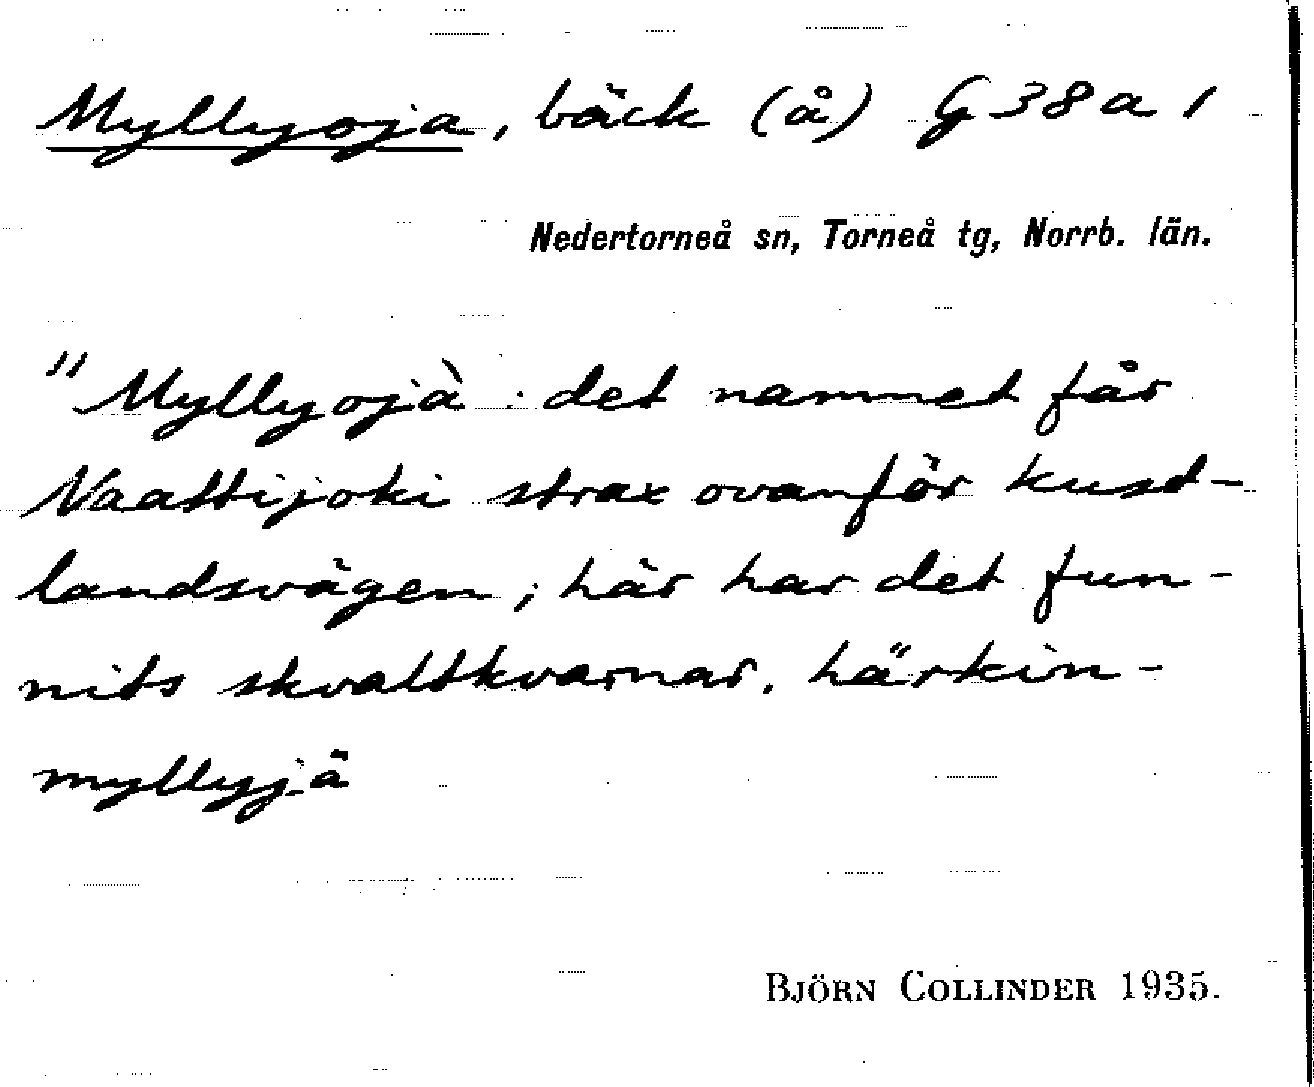 Myllyoja, bäck (å) G 38 a 1
Nedertorneå sn, Torneå tg, Norrb. län.
"Myllyojà : det namnet får
Vaattijoki strax ovanför kust-
landsvägen; här har det fun-
nits skvaltkvarnar, härkin-
myllyjä
BJÖRN COLLINDER 1935.